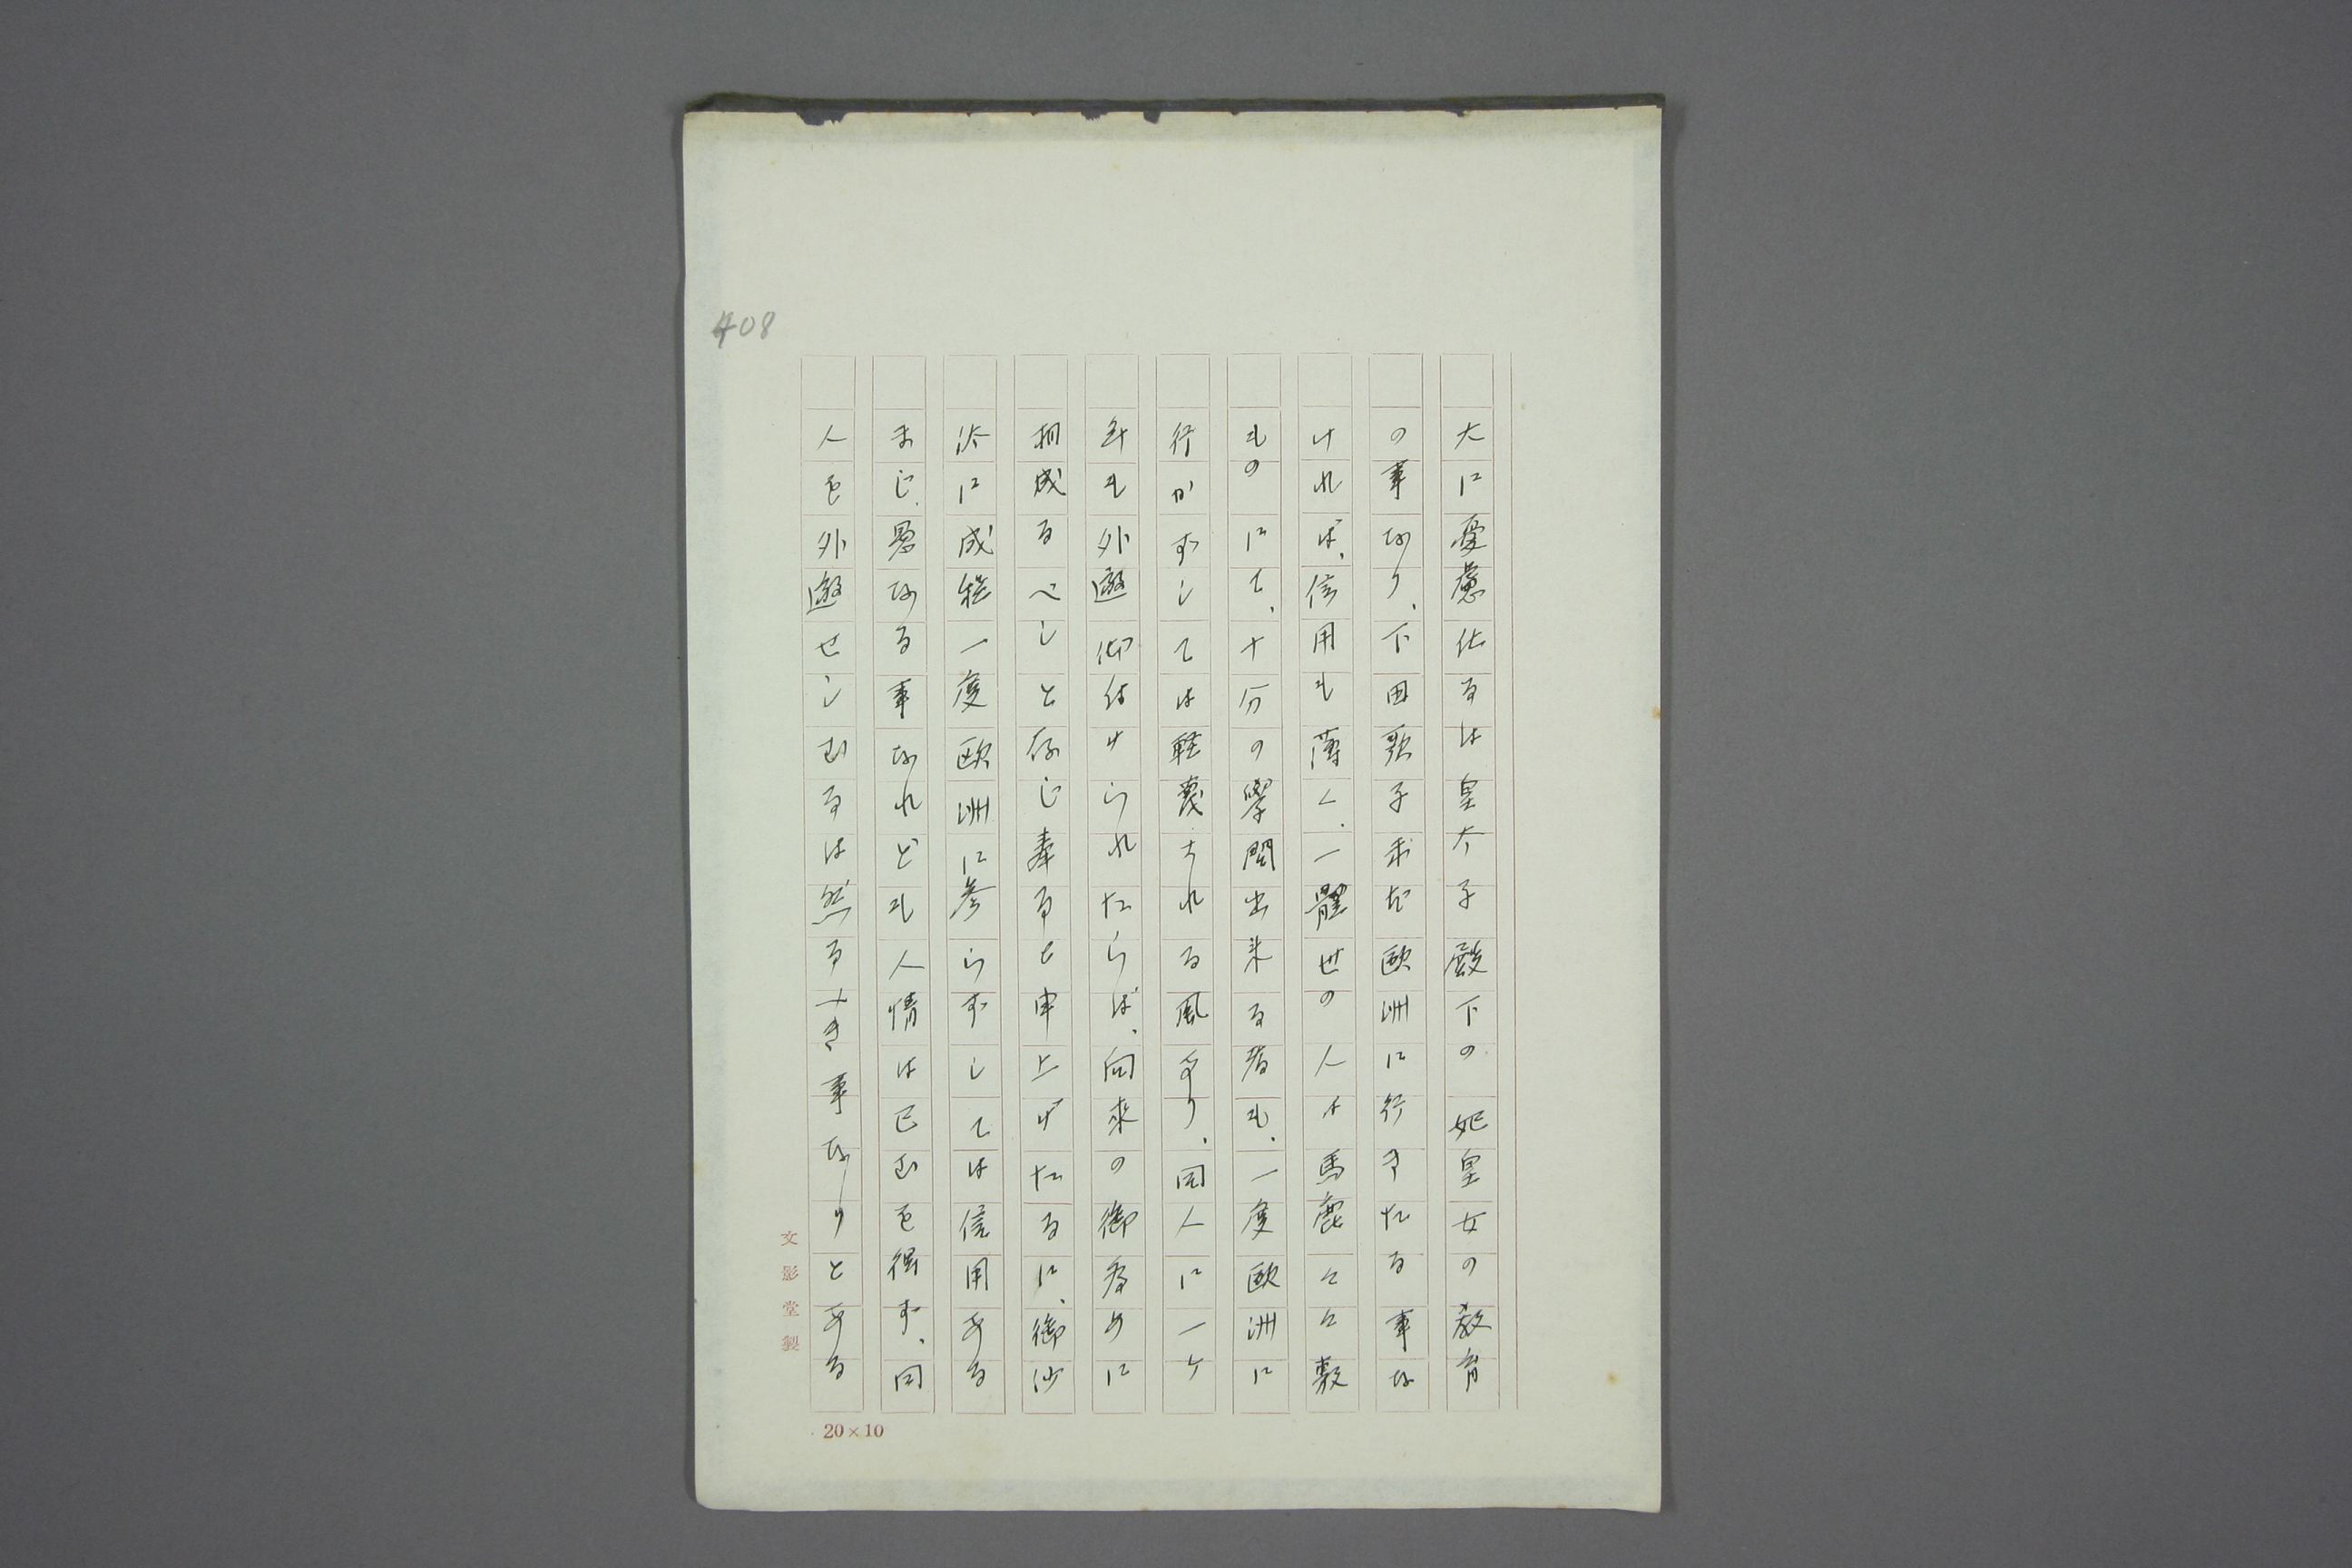 408
大に憂慮仕るは皇太子殿下の妃皇女の教育
の事なり、下田歌子未だ欧洲に行きたる事な
ければ、信用も薄く、一體世の人は馬鹿々々敷
ものにて、十分の學問出来る者も、一度欧洲に
行かずしては軽蔑される風あり、同人に一ケ
年も外遊仰付けられたらば、向来の御為めに
相成るべしと存じ奉ると申上げたるに、御沙
汰に成程一度欧洲に参らずしては信用ある
まじ、愚なる事なれども人情は已むを得ず、同
人を外遊せしむるは然るべき事なりとある
文影堂製
20×10